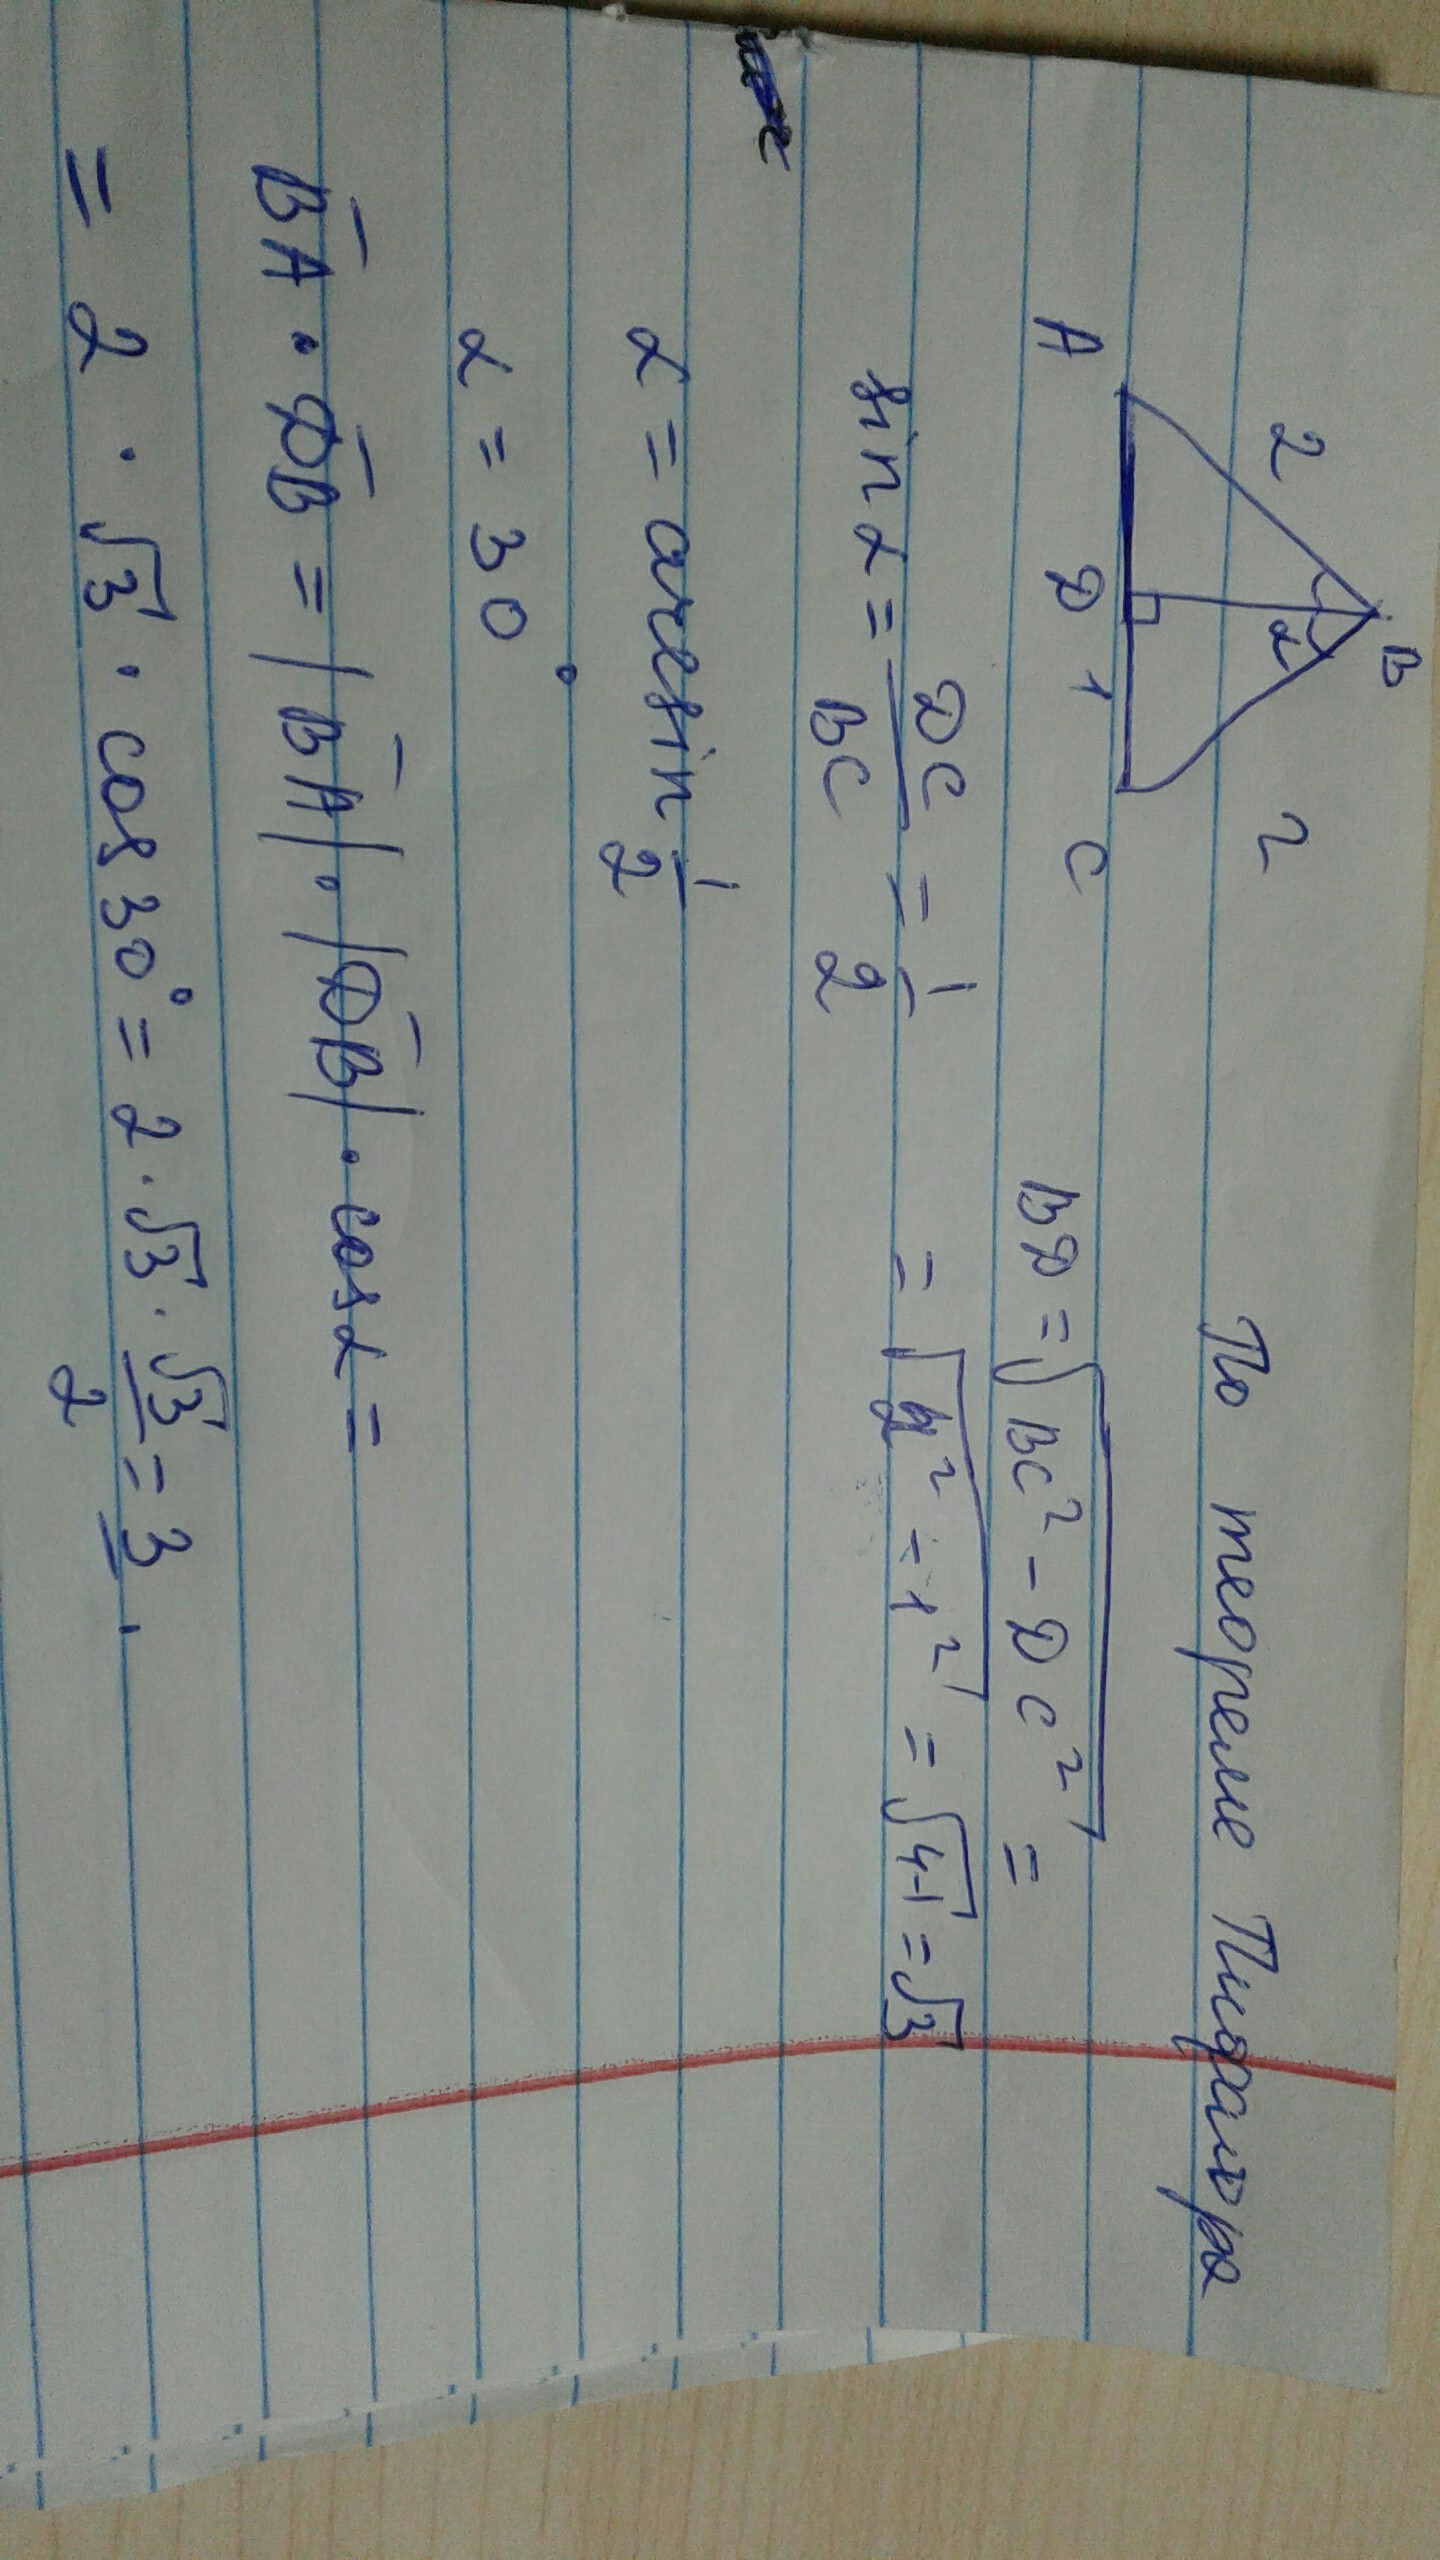 B
2 2
α
A D 1 C
По теореме Пифагора
BD = √BC² - DC² =
= √2² - 1² = √4-1 = √3
sin α = DC/BC = 1/2
α = arcsin 1/2
α = 30°
B̅A̅ · D̅B̅ = |B̅A̅| · |D̅B̅| · cos α =
= 2 · √3 · cos 30° = 2 · √3 · √3/2 = 3.